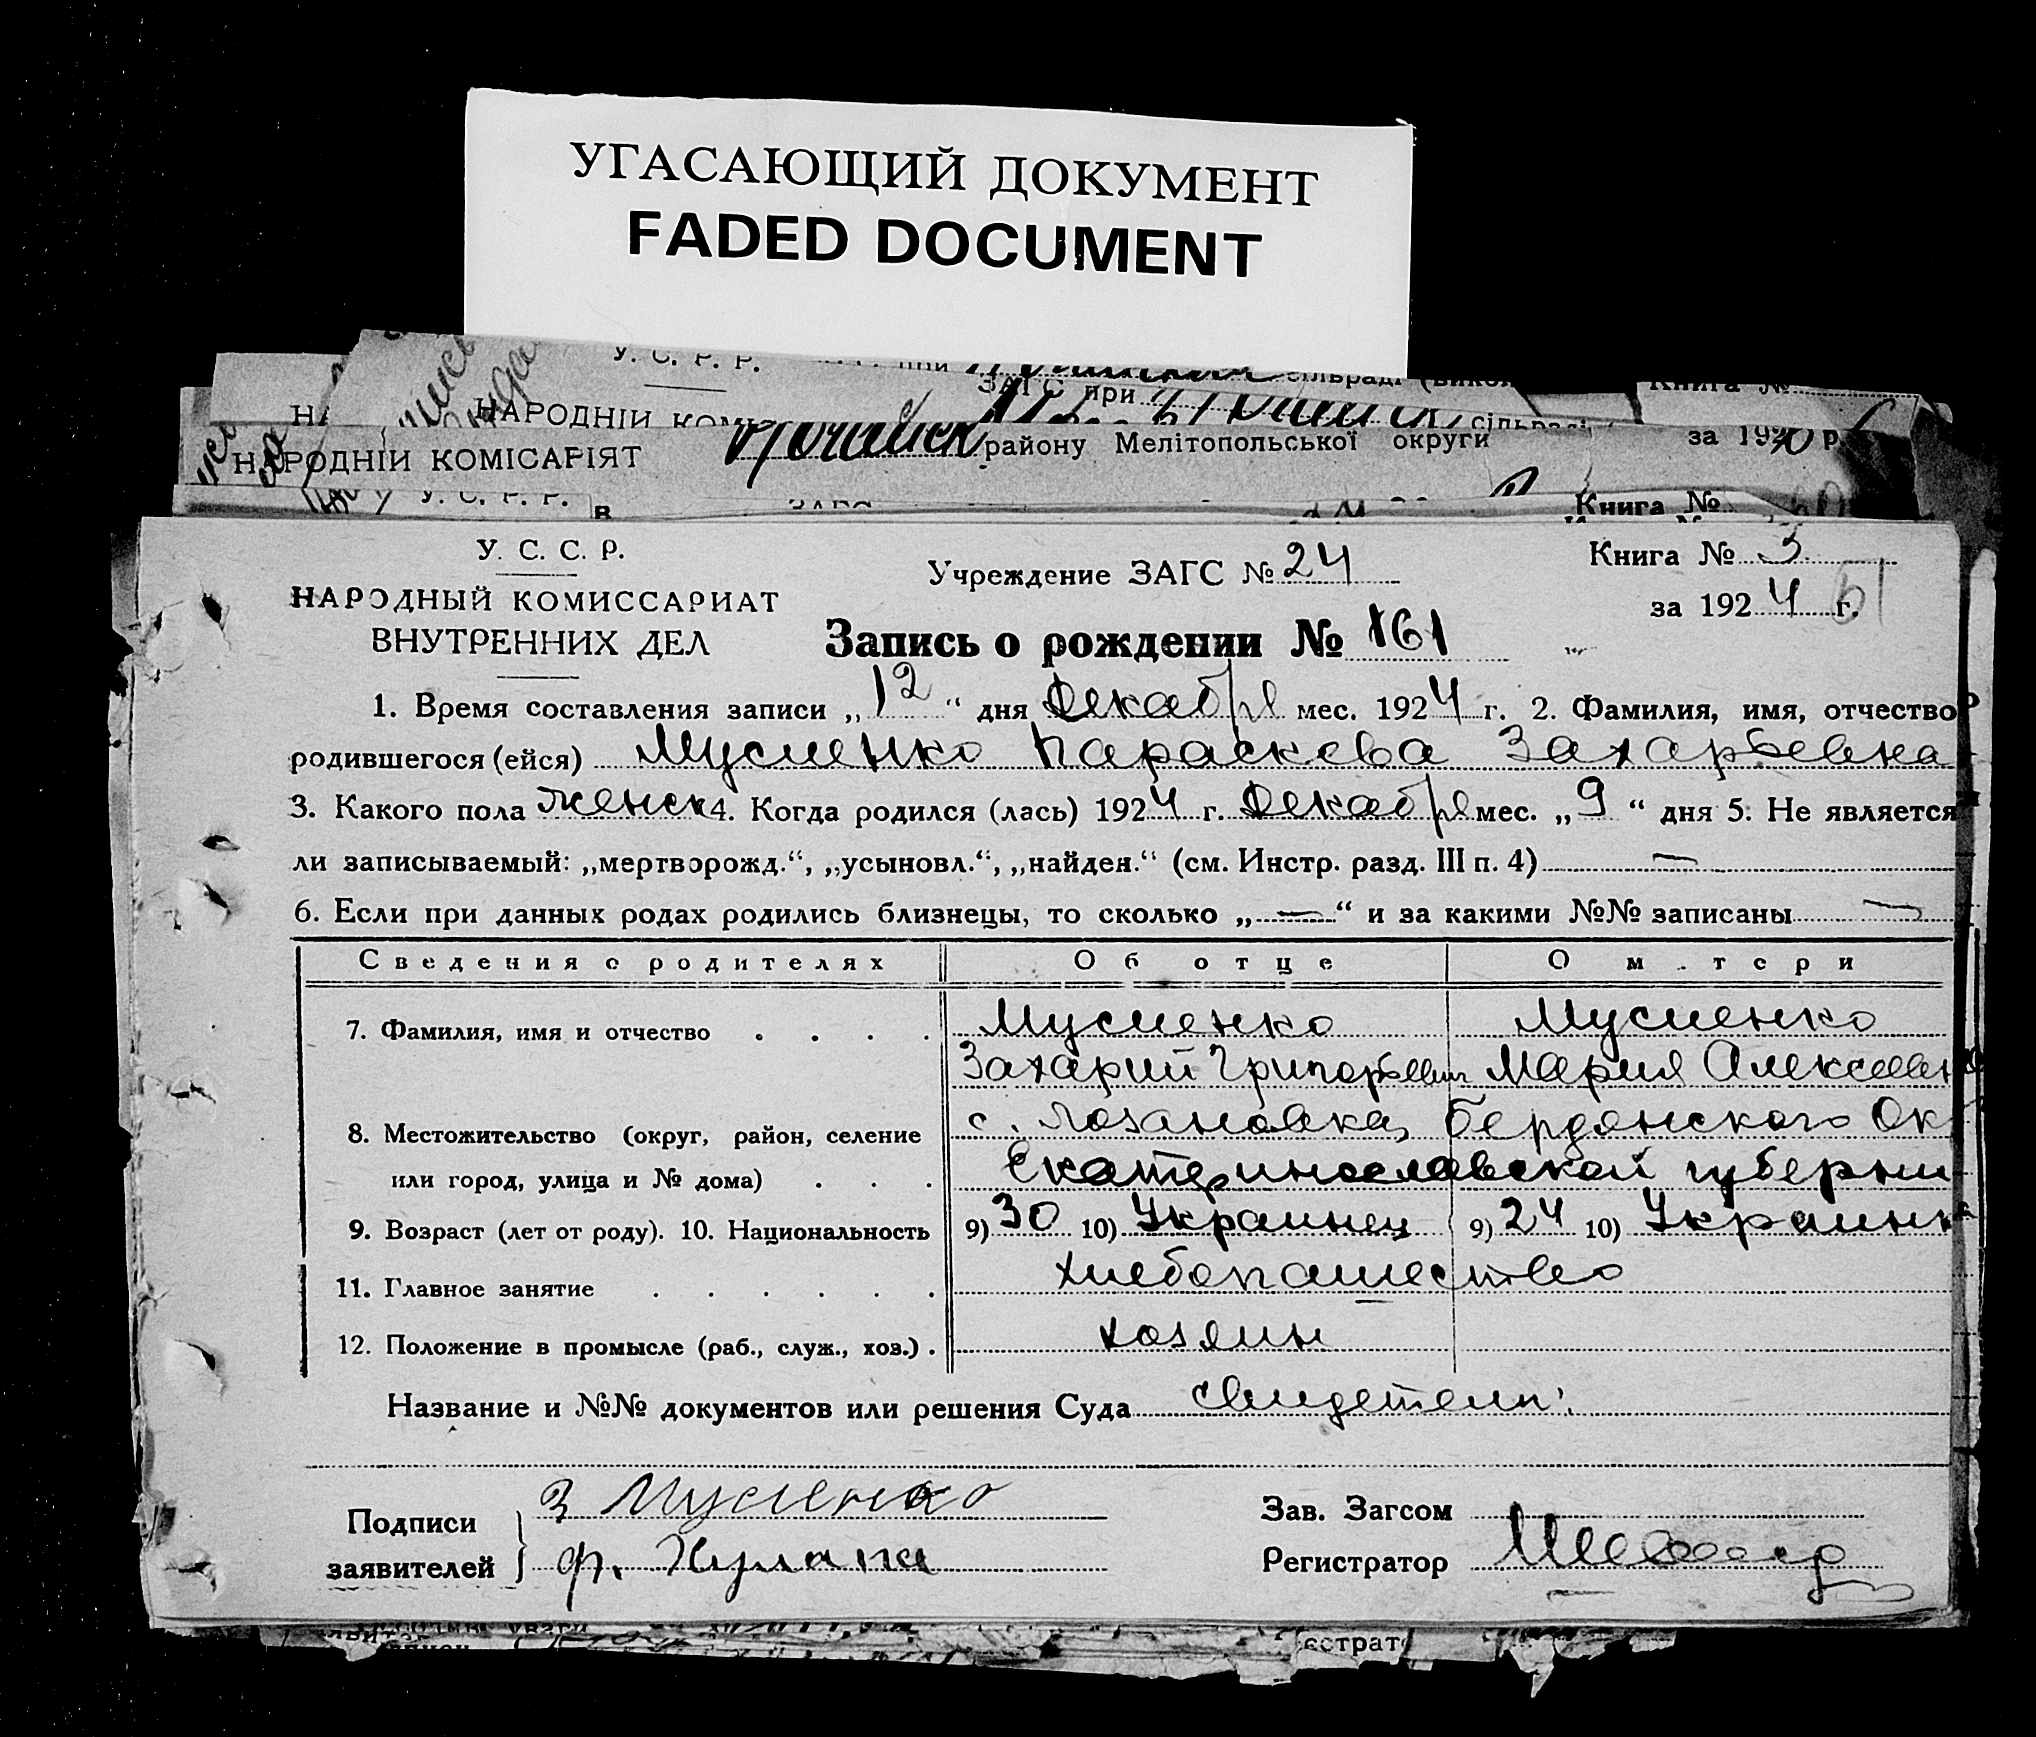 УГАСАЮЩИЙ ДОКУМЕНТ
FADED DOCUMENT
У. С. Р. Р. при сільраді
ЗАГС при
Книга №
НАРОДНІЙ сільраді
НАРОДНІЙ КОМІСАРІЯТ району Мелітопольської округи за 1920 р.
У. С. Р. Р. Книга №
У. С. С. Р.
НАРОДНЫЙ КОМИССАРИАТ
ВНУТРЕННИХ ДЕЛ
Учреждение ЗАГС № 24
Книга № 3
за 1924 г. 61
Запись о рождении № 161
1. Время составления записи „12“ дня Декабря мес. 1924 г. 2. Фамилия, имя, отчество
родившегося (ейся) Мусиенко Параскева Захарьевна
3. Какого пола женск 4. Когда родился (лась) 1924 г. Декабря мес. „9“ дня 5. Не является
ли записываемый: „мертворожд.“, „усыновл.“, „найден.“ (см. Инстр. разд. III п. 4) —
6. Если при данных родах родились близнецы, то сколько „—“ и за какими №№ записаны —
Сведения о родителях Об отце О м.тери
7. Фамилия, имя и отчество . . . . Мусиенко Мусиенко
Захарий Григорьевич Мария Алексеевн
8. Местожительство (округ, район, селение с. Лозановка, Бердянского Ок
или город, улица и № дома) . . . Екатеринославской губерни
9. Возраст (лет от роду). 10. Национальность 9) 30 10) Украинец 9) 24 10) Украинк
11. Главное занятие . . . . . . хлебопашество
12. Положение в промысле (раб., служ., хоз.) . хозяин
Название и №№ документов или решения Суда свидетели:
Подписи
заявителей
З Мусиенко
Ф.
Зав. Загсом
Регистратор